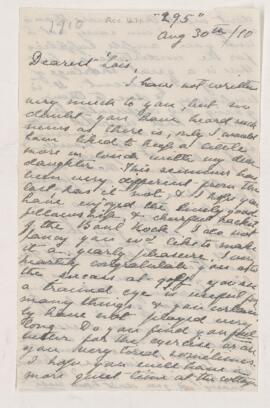 1910
"295"
Aug 30th/10
Dearest Lois,
I have not written
very much to you, but no
doubt you have heard such
news as there is, only I would
have liked to keep a little
more in touch with my dear
daughter. This summer has
been very different from the
last, has it not, & I hope you
have enjoyed the lovely good
fellowship, & cheerful racket
of the Bank Rock. I do not
fancy you wd like to make
it a yearly pleasure. I very
heartily congratulate you on
the success at golf, you see
a trained eye is useful for
many things, & you certainly
have not played very
long. Do you find you feel
better for the exercise or are
you very tired sometimes.
I hope you will have a
more quiet time at the cottage